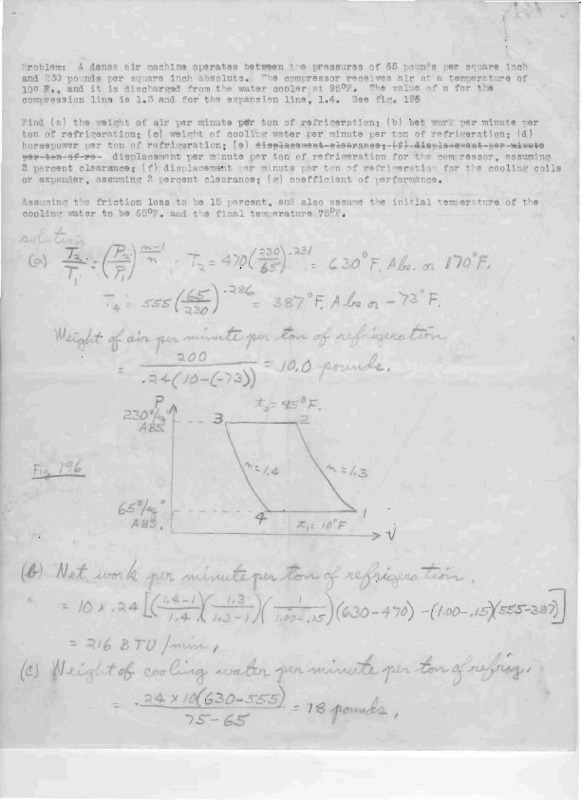 Problem: A dense air machine operates between the pressures of 65 pounds per square inch
and 230 pounds per square inch absolute. The compressor receives air at a temperature of
10º F., and it is discharged from the water cooler at 95ºF. The value of n for the
compression line is 1.3 and for the expansion line, 1.4. See fig. 196
Find (a) the weight of air per minute per ton of refrigeration; (b) net work per minute per
ton of refrigeration; (c) weight of cooling water per minute per ton of refrigeration; (d)
horsepower per ton of refrigeration; (e) displacement clearance; (f) displacement per minute
per ton of re- displacement per minute per ton of refrigeration for the compressor, assuming
2 percent clearance; (f) displacement per minute per ton of refrigeration for the cooling coils
or expander, assuming 2 percent clearance; (g) coefficient of performance.
Assuming the friction loss to be 15 percent, and also assume the initial temperature of the
cooling water to be 65ºF. and the final temperature 75ºF.
solution
(a) T₂/T₁ = (P₂/P₁)^(n-1)/n ; T₂ = 470(230/65)^.231 = 630° F. Abs. or 170° F.
T₄ = 555(65/230)^.286 = 387° F. Abs or -73° F.
Weight of air per minute per ton of refrigeration
= 200/.24(10-(-73)) = 10.0 pounds.
P
t₃ = 95° F.
230#/sq"
ABS.
3
2
Fig. 196
n=1.4
n=1.3
65#/sq"
ABS.
4
1
t₁ = 10° F.
V
(b) Net work per minute per ton of refrigeration.
= 10 x .24 [((1.4-1)/1.4)(1.3/(1.3-1))(1/(1.00-.15))(630-470) -(1.00-.15)(555-387)]
= 216 BTU/min.
(c) Weight of cooling water per minute per ton of refrig.
= .24 x 10(630-555)/75-65 = 18 pounds.